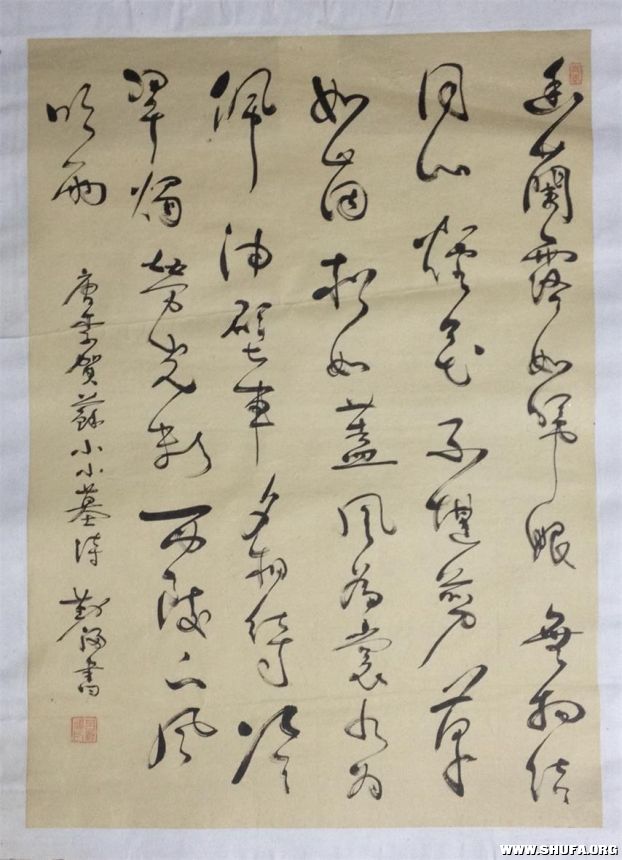 幽蘭露如啼眼無物結
同心煙花不堪剪草
如茵松如蓋風為裳水為
佩油壁車夕相待冷
翠燭勞光彩西陵下風
吹雨
唐李賀蘇小小墓詩 書
WWW.SHUFA.ORG